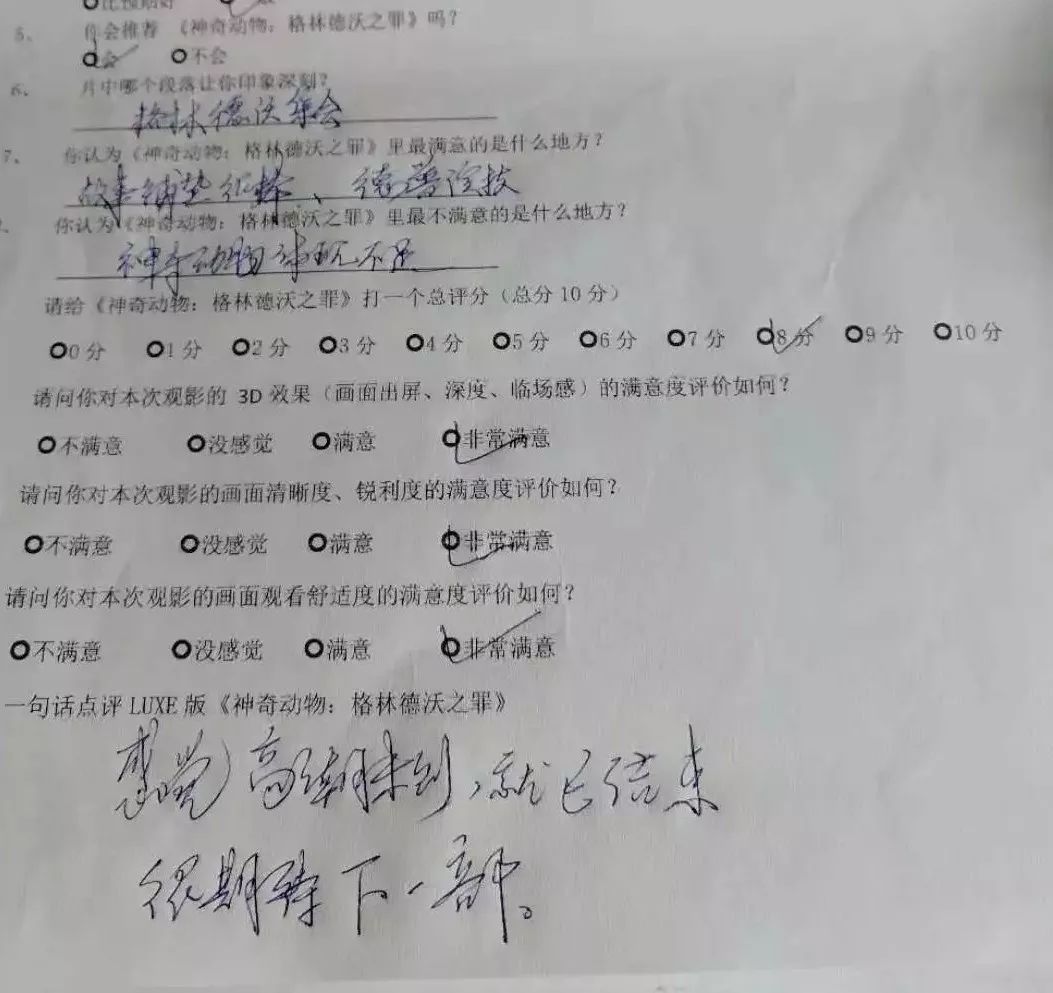 5、 你会推荐《神奇动物：格林德沃之罪》吗？
会 不会
6、 片中哪个段落让你印象深刻？
格林德沃集会
7、 你认为《神奇动物：格林德沃之罪》里最满意的是什么地方？
故事铺垫很棒、德普演技
你认为《神奇动物：格林德沃之罪》里最不满意的是什么地方？
神奇动物体现不足
请给《神奇动物：格林德沃之罪》打一个总评分（总分10分）
0分 1分 2分 3分 4分 5分 6分 7分 8分 9分 10分
请问你对本次观影的 3D 效果（画面出屏、深度、临场感）的满意度评价如何？
不满意 没感觉 满意 非常满意
请问你对本次观影的画面清晰度、锐利度的满意度评价如何？
不满意 没感觉 满意 非常满意
请问你对本次观影的画面观看舒适度的满意度评价如何？
不满意 没感觉 满意 非常满意
一句话点评 LUXE 版《神奇动物：格林德沃之罪》
感觉高潮未到，就已结束
很期待下一部。